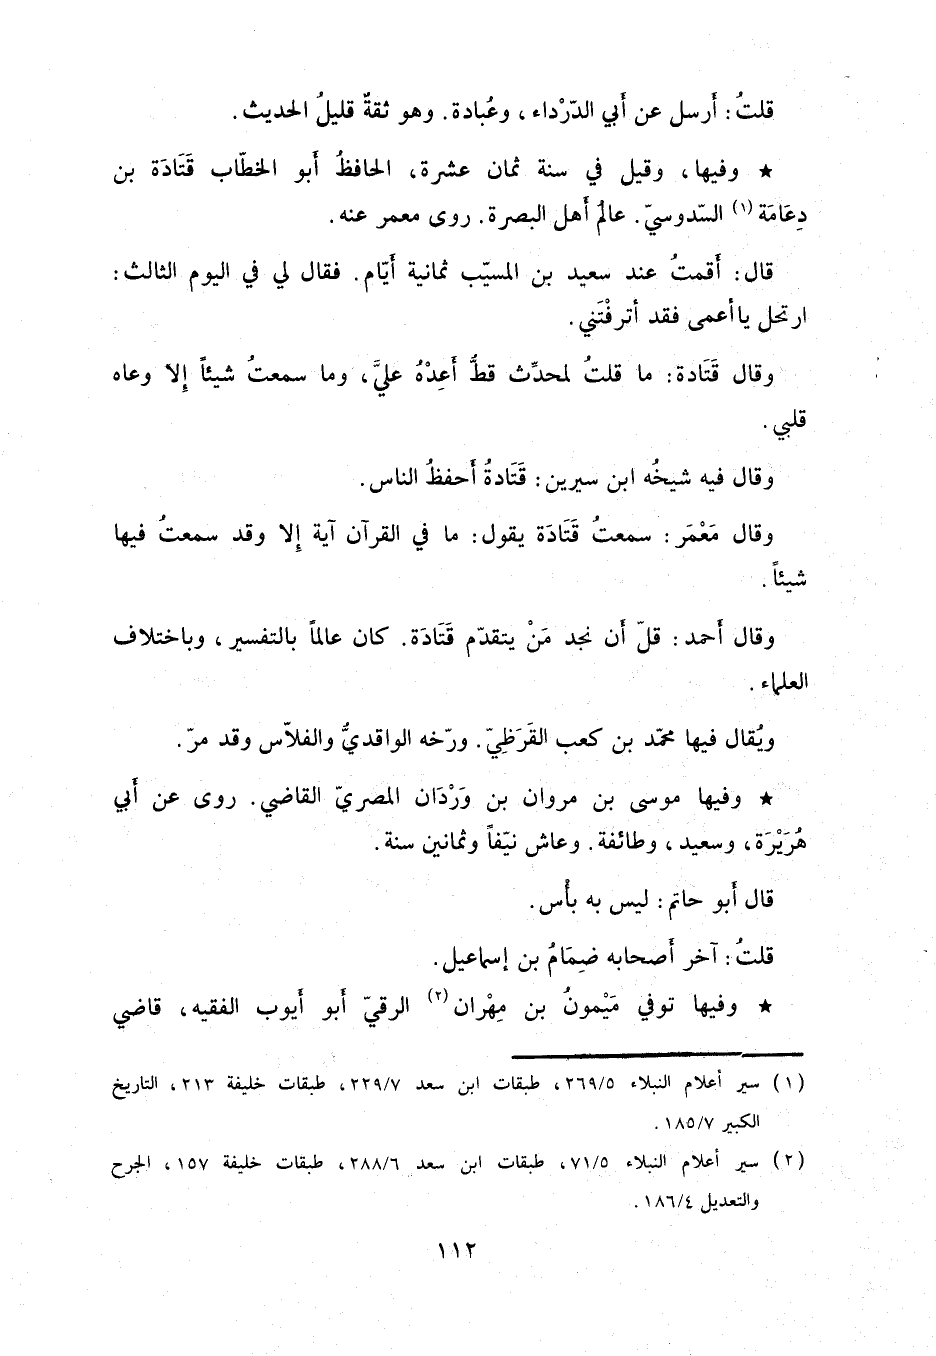 قلتُ: أَرسل عن أَبي الدّرْداء، وعُبادة. وهو ثقةٌ قليلُ الحديث.
★ وفيها، وقيل في سنة ثمان عشرة، الحافظُ أَبو الخطّاب قَتَادَة بن
دِعَامَة (١) السّدوسيّ. عالمُ أَهل البصرة. روى معمر عنه.
قال: أَقمتُ عند سعيد بن المسيّب ثمانية أَيّام. فقال لي في اليوم الثالث:
ارتحل ياأعمى فقد أترفْتَني.
وقال قَتَادة: ما قلتُ لمحدِّث قطُّ أَعِدْهُ عليَّ، وما سمعتُ شيئاً إِلا وعاه
قلبي.
وقال فيه شيخُه ابن سيرين: قَتَادةُ أَحفظُ الناس.
وقال مَعْمَر: سمعتُ قَتَادَة يقول: ما في القرآن آية إِلا وقد سمعتُ فيها
شيئاً.
وقال أَحمد: قلّ أَن نجد مَنْ يتقدّم قَتَادَة. كان عالماً بالتفسير، وباختلاف
العلماء.
ويُقال فيها محمّد بن كعب القَرَظِيّ. ورّخه الواقديُّ والفلاّس وقد مرّ.
★ وفيها موسى بن مروان بن وَرْدَان المصريّ القاضي. روى عن أَبي
هُرَيْرَة، وسعيد، وطائفة. وعاش نيّفاً وثمانين سنة.
قال أَبو حاتم: ليس به بأْس.
قلتُ: آخر أَصحابه ضِمَامُ بن إسماعيل.
★ وفيها توفي مَيْمونُ بن مِهْران (٢) الرقيّ أَبو أَيوب الفقيه، قاضي
(١) سير أعلام النبلاء ٢٦٩/٥، طبقات ابن سعد ٢٢٩/٧، طبقات خليفة ٢١٣، التاريخ
الكبير ١٨٥/٧.
(٢) سير أعلام النبلاء ٧١/٥، طبقات ابن سعد ٢٨٨/٦، طبقات خليفة ١٥٧، الجرح
والتعديل ١٨٦/٤.
١١٢